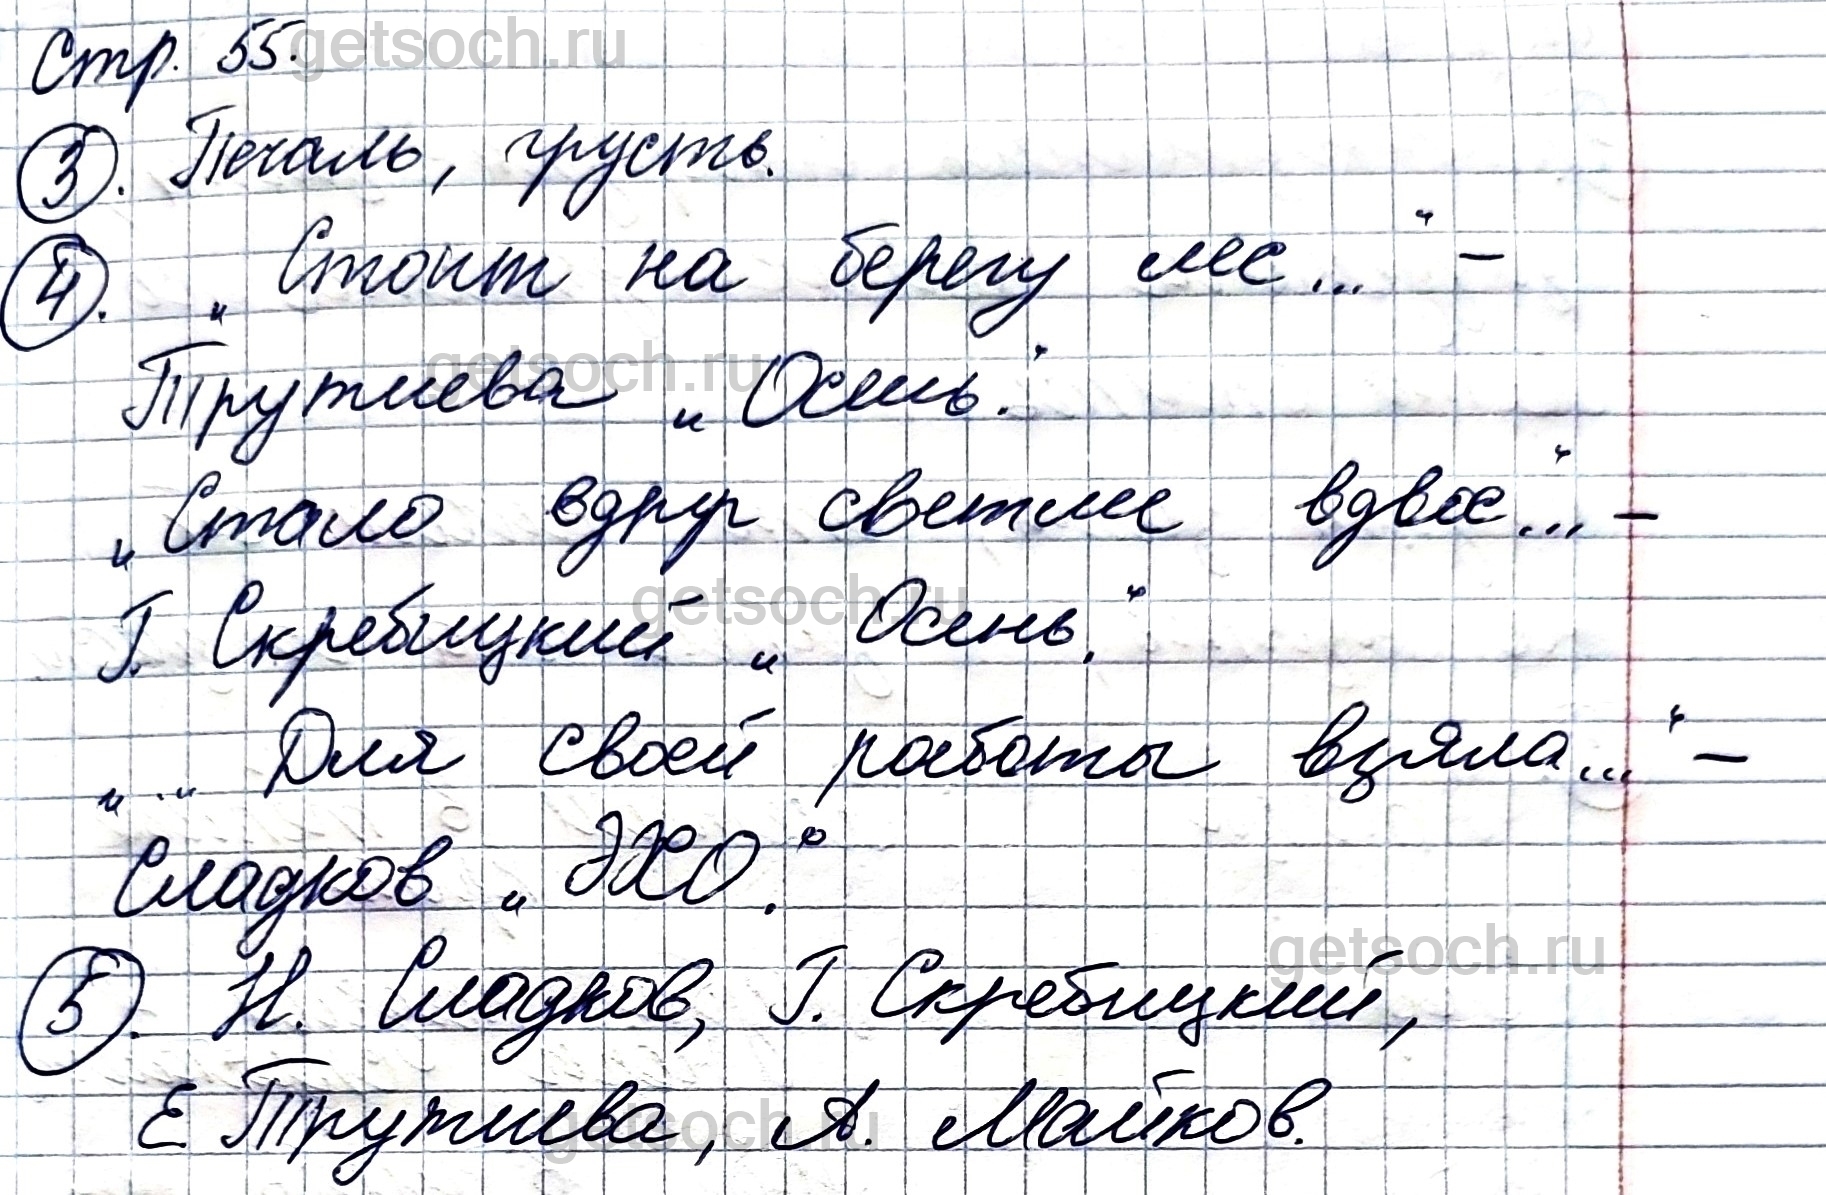 Стр. 55.
3. Печаль, грусть.
4. „Стоит на берегу лес..."–
Трутнева „Осень."
„Стало вдруг светлее вдвое..."–
Г. Скребицкий „Осень."
„... Для своей работы взяла..."–
Сладков „ЭХО."
5. Н. Сладков, Г. Скребицкий,
Е Трутнева, А. Майков.
getsoch.ru
getsoch.ru
getsoch.ru
getsoch.ru
getsoch.ru